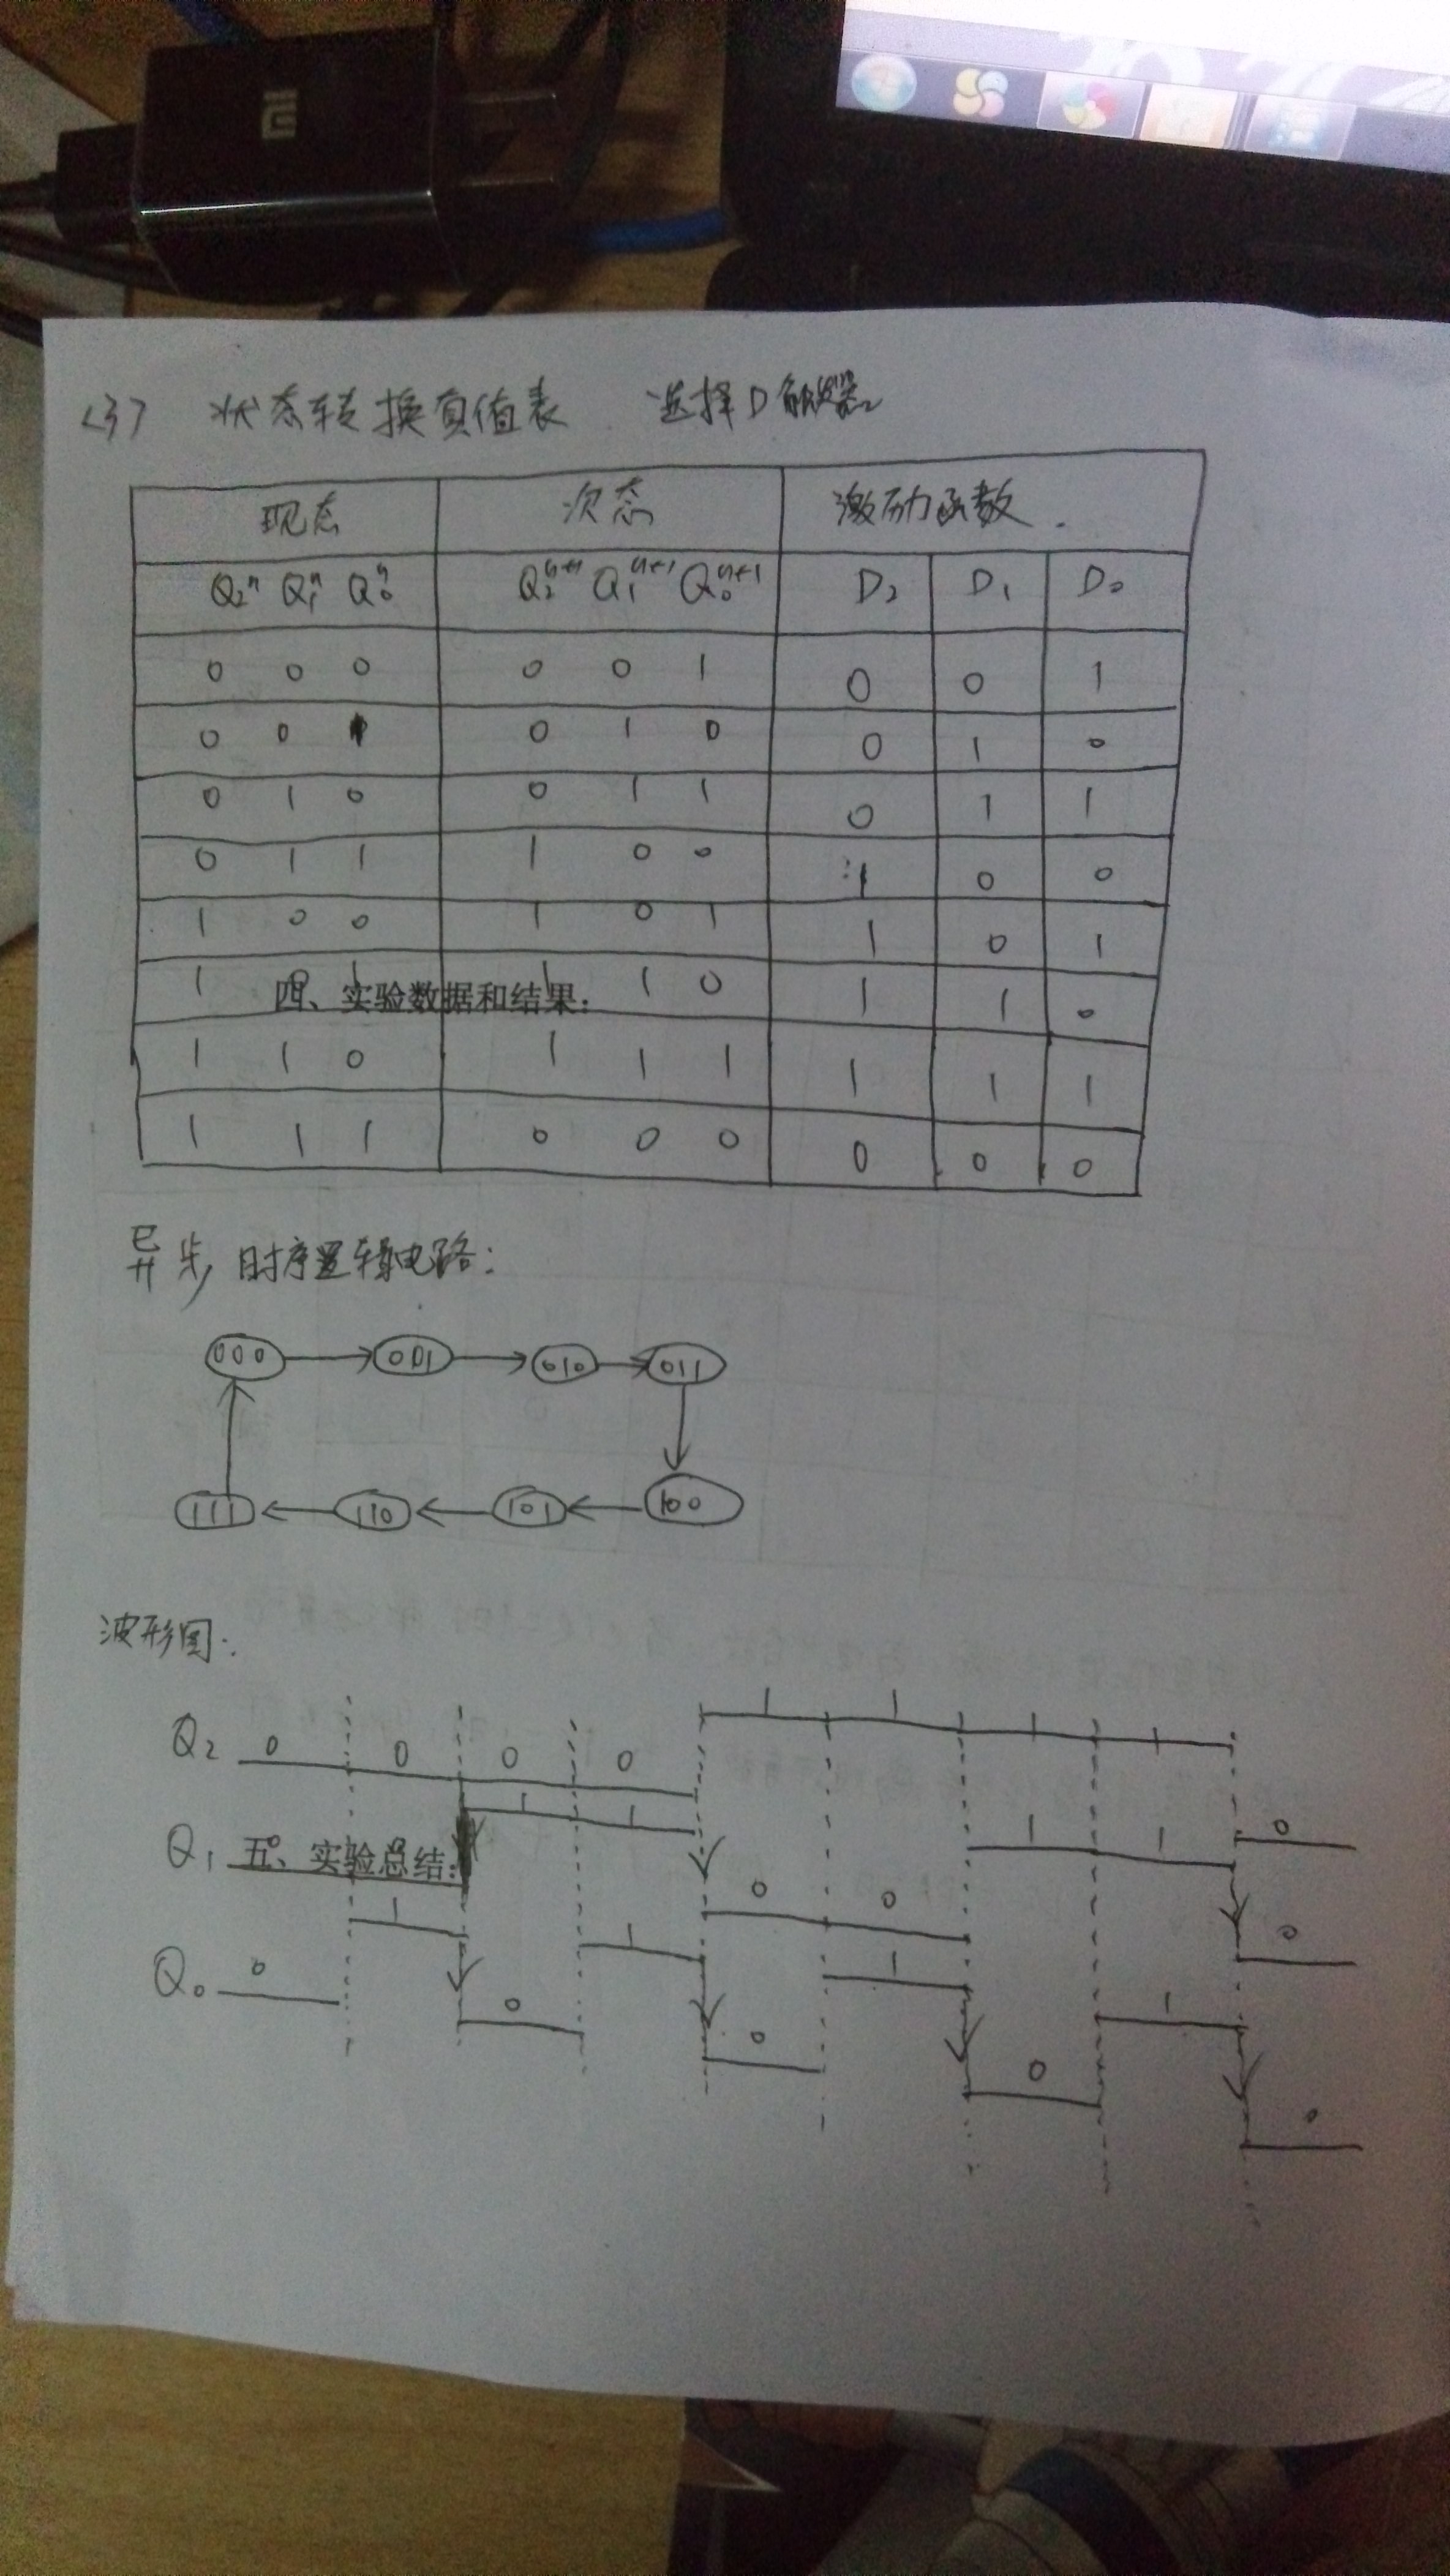 <3> 状态转换真值表 选择D触发器
现态 次态 激励函数.
Q₂ⁿ Q₁ⁿ Q₀ⁿ Q₂ⁿ⁺¹ Q₁ⁿ⁺¹ Q₀ⁿ⁺¹ D₂ D₁ D₀
0 0 0 0 0 1 0 0 1
0 0 1 0 1 0 0 1 0
0 1 0 0 1 1 0 1 1
0 1 1 1 0 0 1 0 0
1 0 0 1 0 1 1 0 1
1 0 1 1 1 0 1 1 0
四、实验数据和结果:
1 1 0 1 1 1 1 1 1
1 1 1 0 0 0 0 0 0
异步时序逻辑电路:
000 001 010 011
111 110 101 100
波形图:
Q₂ 0 0 0 0 1 1 1 1 0
Q₁ 0 0 1 1 0 0 1 1 0
五、实验总结:
Q₀ 0 1 0 1 0 1 0 1 0